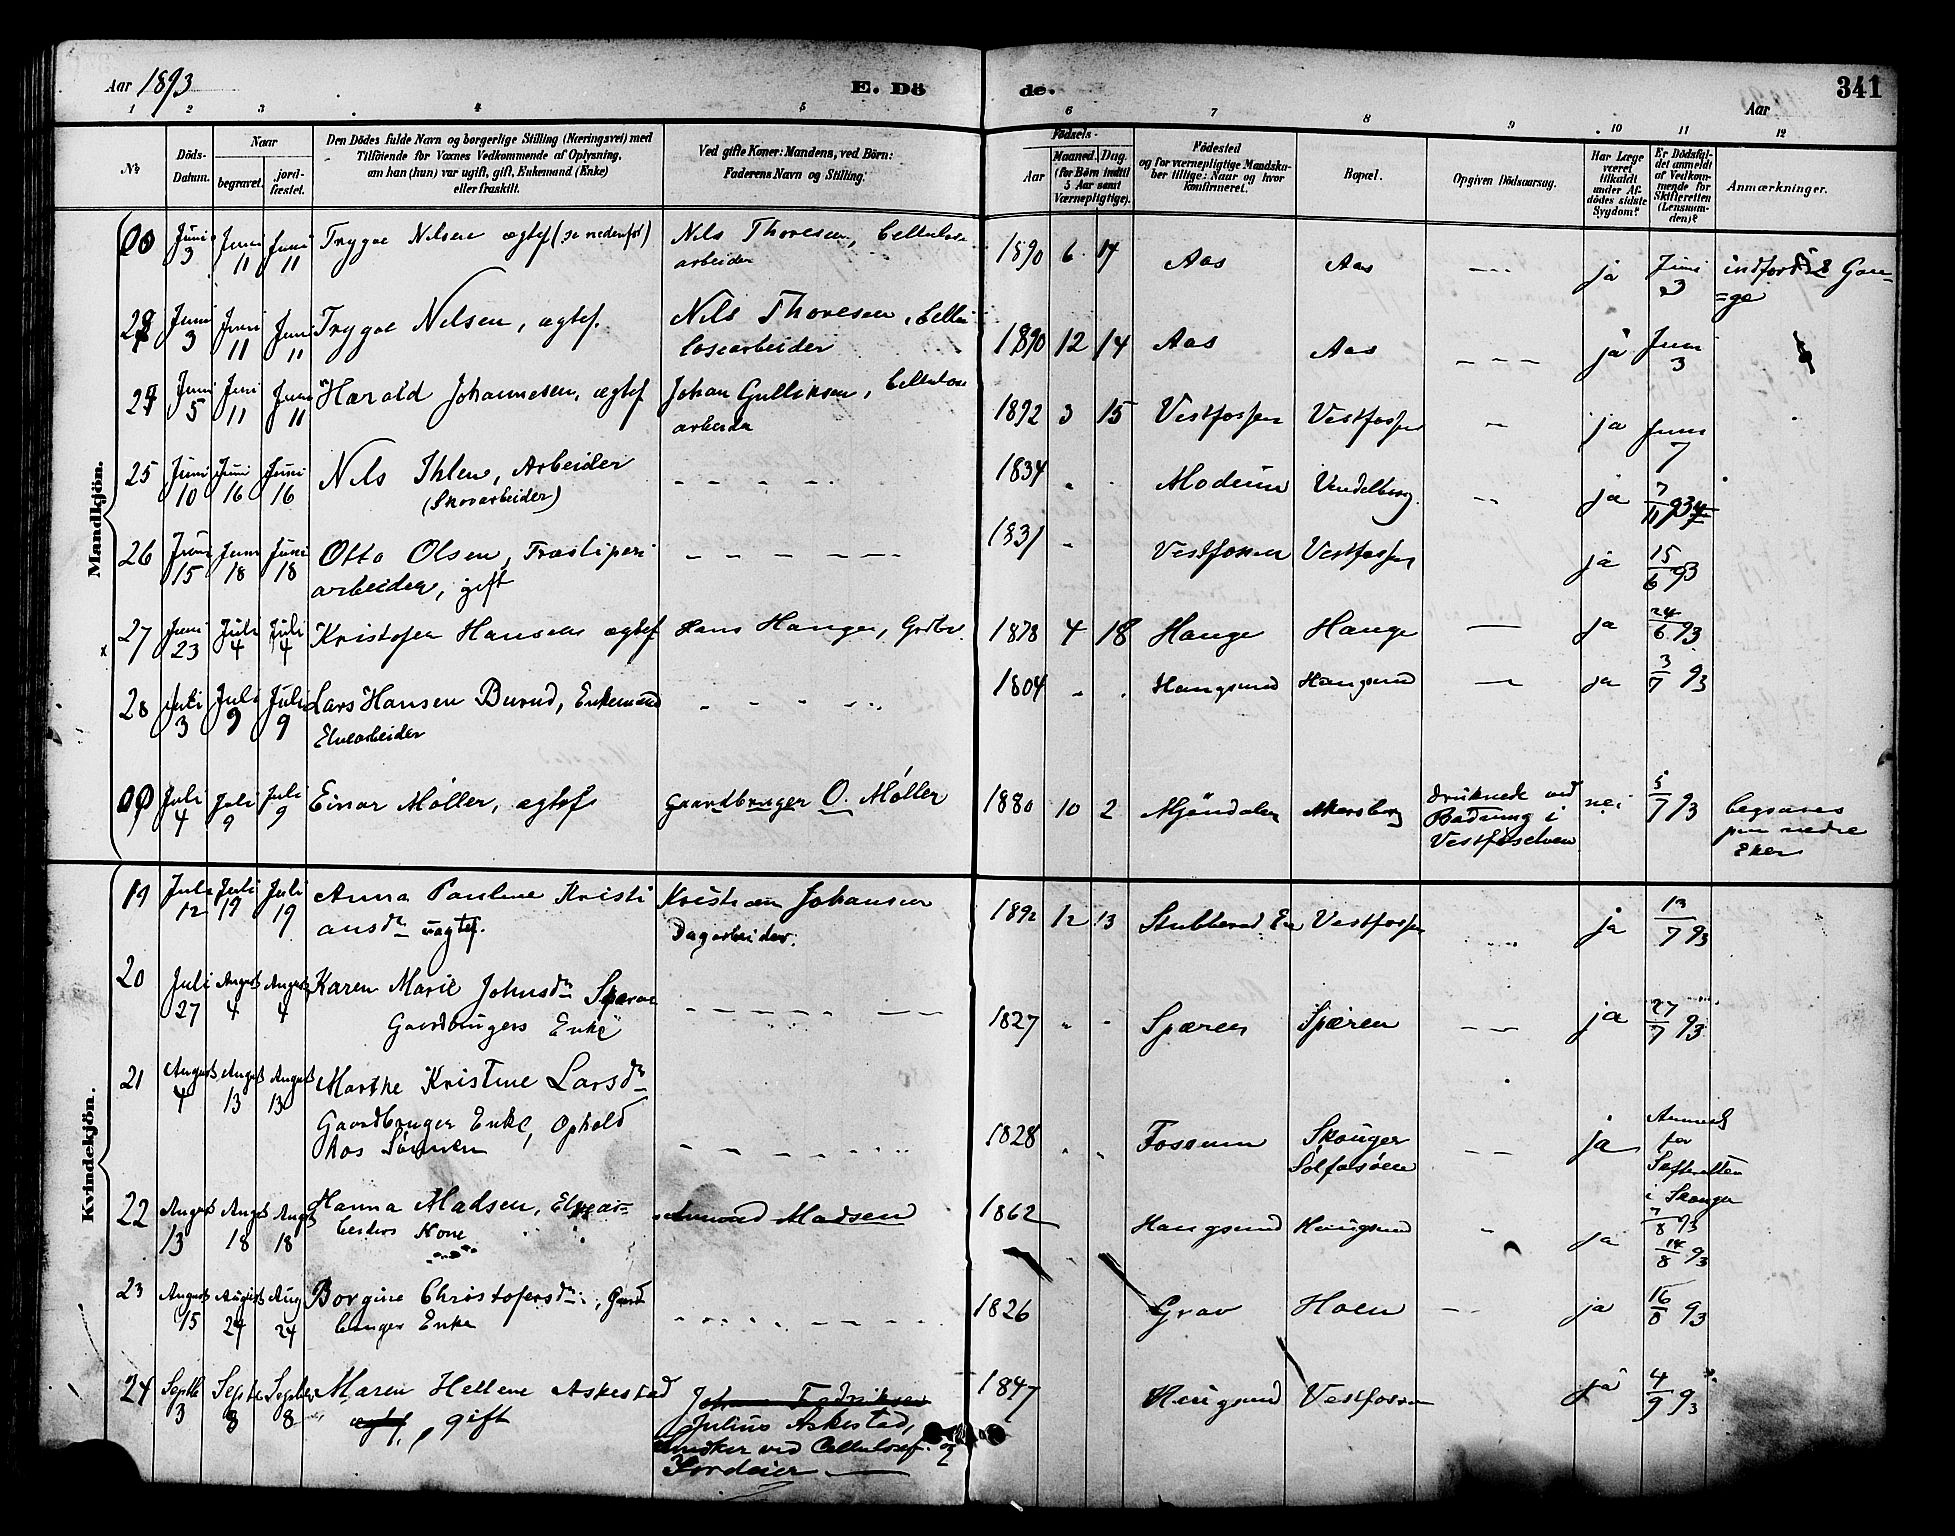 Aar 1893
E. Dö de.
341
Aar
1 2 3 4 5 6 7 8 9 10 11 12
No.
Döds-Datum.
Naar
begravet.
jord-fæstet.
Den Dödes fulde Navn og borgerlige Stilling (Næringsvei) med
Tilföiende for Voxnes Vedkommende af Oplysning,
om han (hun) var ugift, gift, Enkemand (Enke)
eller fraskilt.
Ved gifte Koner: Mandens, ved Börn:
Faderens Navn og Stilling.
Födsels-
Aar
Maaned. Dag.
(for Börn indtil
5 Aar samt
Værnepligtige).
Födested
og for værnepligtige Mandska-
ber tillige: Naar og hvor
konfirmeret.
Bopæl.
Opgiven Dödsaarsag.
Har Læge
været
tilkaldt
under Af-
dödes sidste
Sygdom?
Er Dödsfal-
det anmeldt
af Vedkom-
mende for
Skifteretten
(Lensman-
den)?
Anmærkninger.
Mandkjön.
Juni 3 Juni 11 Juni 11 Trygve Nilsen ægtef (se nedenfor) Nils Thoresen, Cellulose
arbeider 1890 6 14 Aas Aas ja Juni 3 indført 2 Gan-
=ge
Juni 3 Juni 11 Juni 11 Trygve Nilsen, ægtef. Nils Thoresen, Cellu
losearbeider 1890 12 14 Aas Aas ja Juni 3
Juni 5 Juni 11 Juni 11 Harald Johannesen, ægtef Johan Gulliksen, Cellulose
arbeider 1892 3 15 Vestfossen Vestfossen ja Juni 7
25 Juni 10 Juni 16 Juni 16 Nils Ihlen, Arbeider
(Skovarbeider) 1834 Modum Vendelborg ja 7/11 93
26 Juni 15 Juni 18 Juni 18 Otto Olsen, Træsliperi
arbeider, gift 1831 Vestfossen Vestfossen ja 15/6 93
27 Juni 23 Juli 4 Juli 4 Kristofer Hansen ægtef Hans Hauge, Grdbr. 1878 4 18 Hauge Hauge ja 24/6 93
28 Juli 3 Juli 9 Juli 9 Lars Hansen Burud, Enkemand
Elvearbeider 1804 Haugsund Haugsund ja 3/7 93
Juli 4 Juli 9 Juli 9 Einar Møller, ægtef Gaardbruger O. Møller 1880 10 2 Mjøndalen Akersberg druknede ved
Badning i
Vestfoselven nei 5/7 93 begraves
paa nedre
Eker
Kvindekjön.
19 Juli 12 Juli 19 Juli 19 Anna Pauline Kristi
ansdr uægtef. Kristian Johansen
Dagarbeider. 1892 12 13 Stubberud Eie Vestfossen ja 13/7 93
20 Juli 27 August 4 August 4 Karen Marie Johnsdr Spæren
Gaardbrugers Enke 1827 Spæren Spæren ja 27/7 93
21 August 4 August 13 August 13 Marthe Kristine Larsdr
Gaardbruger Enke, Ophold
hos Sønnen 1828 Fossum Skouger
Sølfosøen ja Anmeldt
for
Skifteretten
i Skouger
7/8 93
22 August 13 August 18 August 18 Hanna Madsen, Elvear=
beiders Kone Madsen 1862 Haugsund Haugsund ja 14/8 93
23 August 15 August 24 Aug 24 Borgine Christofersdr, Gaard
bruger Enke 1826 Grav Hoen ja 16/8 93
24 Septb 3 Septb 8 Septbr 8 Maren Hellene Askestad
ægtf, gift Johan Fredriksen
Julius Askestad,
ved Cellulosef. og
Jordeier 1847 Haugsund Vestfossen ja 4/9 93